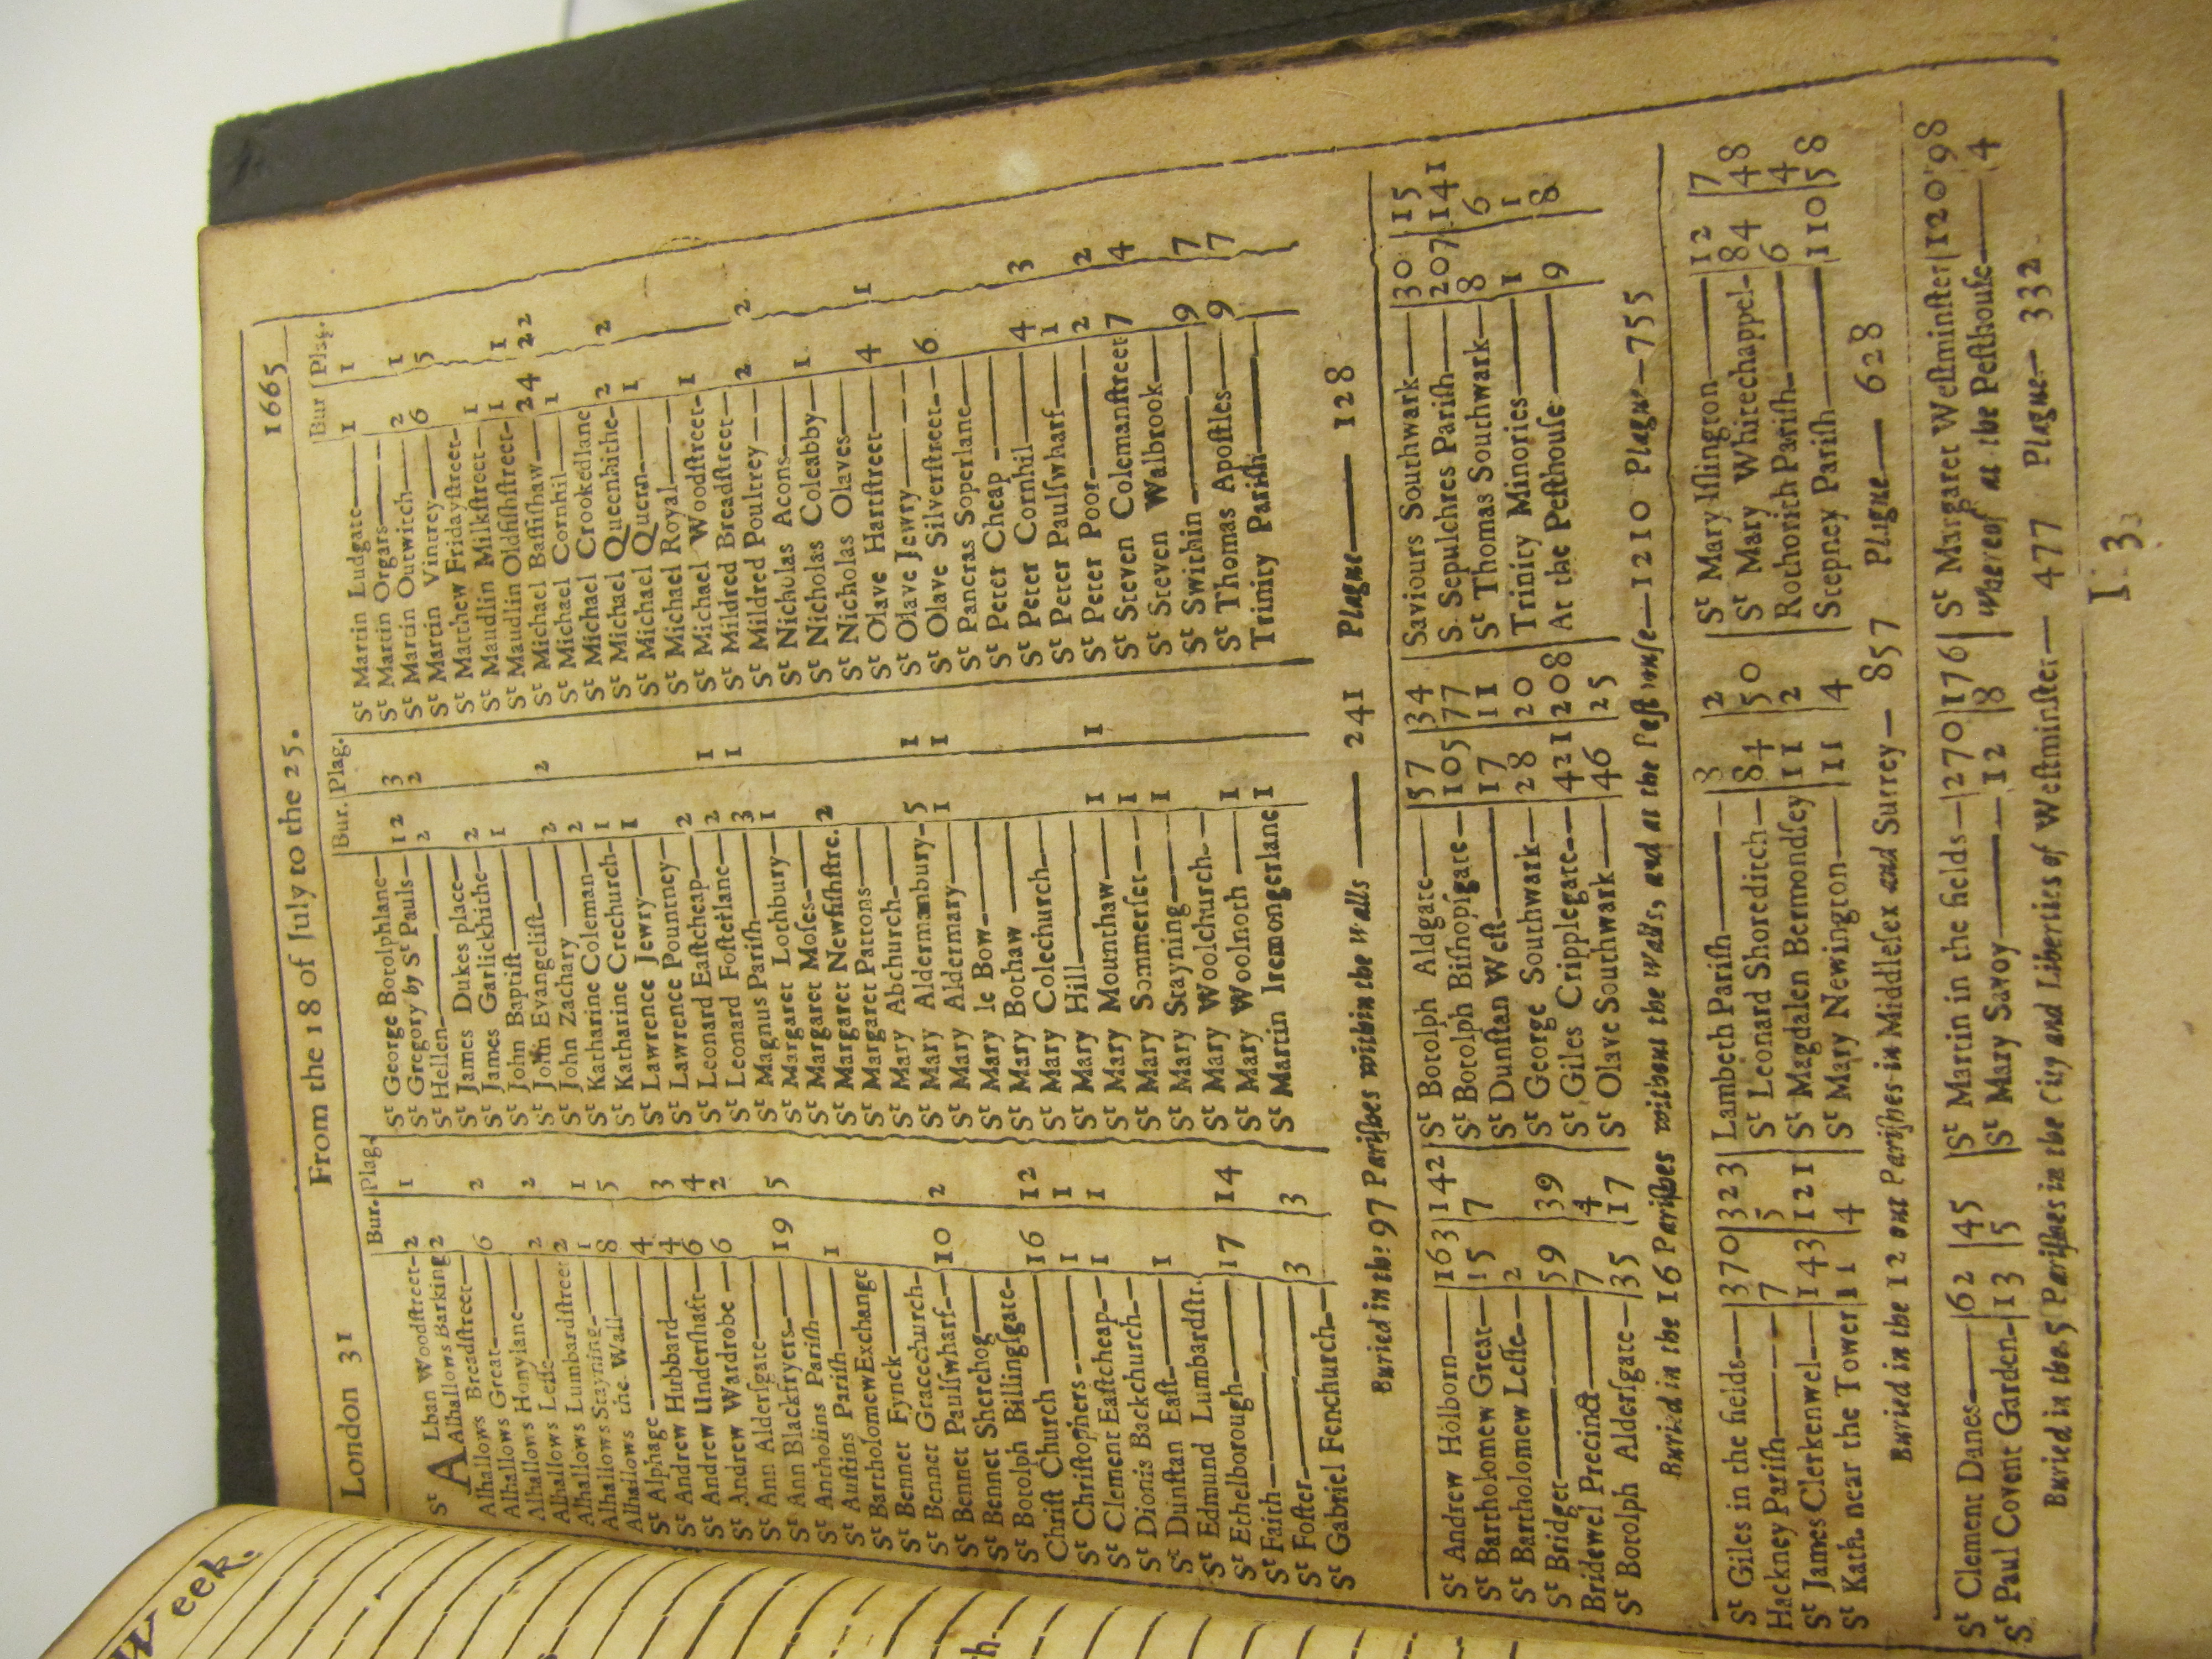 London 31 From the 18 of July to the 25. 1665
Bur. Plag.
St ALban Woodstreet- 2 1
Alhallows Barking 2
Alhallows Breadstreet—
Alhallows Great— 6 2
Alhallows Honylane—
Alhallows Lesse— 2 2
Alhallows Lumbardstreet 2
Alhallows Stayning— 1 1
Alhallows the Wall— 8 5
St Alphage— 4
St Andrew Hubbard— 4 3
St Andrew Undershaft— 6 4
St Andrew Wardrobe— 6 2
St Ann Aldersgate—
St Ann Blackfryers— 19 5
St Antholins Parish—
St Austins Parish— 1
St Bartholomew Exchange
St Bennet Fynck—
St Bennet Gracechurch-
St Bennet Paulswharf- 10 2
St Bennet Sherehog—
St Botolph Billingsgate-
Christ Church— 16 12
St Christophers— 1 1
St Clement Eastcheap— 1 1
St Dionis Backchurch—
St Dunstan East— 1
St Edmund Lumbardstr.
St Ethelborough— 17 14
St Faith—
St Foster— 3 3
St Gabriel Fenchurch—
Bur. Plag.
St George Botolphlane—
St Gregory by St Pauls— 12 3
St Hellen— 2 2
St James Dukes place—
St James Garlickhithe— 2
St John Baptist— 1
St John Evangelist—
St John Zachary— 2 2
St Katharine Coleman— 2
St Katharine Crechurch- 1
St Lawrence Jewry— 1
St Lawrence Pountney—
St Leonard Eastcheap— 2 1
St Leonard Fosterlane— 2 1
St Magnus Parish— 3
St Margaret Lothbury— 1
St Margaret Moses—
St Margaret Newfishstre. 2
St Margaret Pattons—
St Mary Abchurch—
St Mary Aldermanbury- 5 1
St Mary Aldermary— 1 1
St Mary le Bow—
St Mary Bothaw—
St Mary Colechurch—
St Mary Hill—
St Mary Mounthaw— 1 1
St Mary Sommerset— 1
St Mary Stayning— 1
St Mary Woolchurch—
St Mary Woolnoth— 1
St Martin Iremongerlane 1
Bur Plag.
St Martin Ludgate— 1 1
St Martin Orgars—
St Martin Outwitch— 2 1
St Martin Vintrey— 6 5
St Matthew Fridaystreet-
St Maudlin Milkstreet— 1
St Maudlin Oldfishstreet- 1 1
St Michael Bassishaw— 24 22
St Michael Cornhil— 1
St Michael Crookedlane
St Michael Queenhithe- 2 2
St Michael Quern— 1
St Michael Royal—
St Michael Woodstreet- 1
St Mildred Breadstreet—
St Mildred Poultrey— 2 2
St Nicholas Acons—
St Nicholas Coleabby— 1
St Nicholas Olaves—
St Olave Hartstreet— 4 1
St Olave Jewry—
St Olave Silverstreet- 6
St Pancras Soperlane—
St Peter Cheap—
St Peter Cornhil— 4 3
St Peter Paulswharf— 1
St Peter Poor— 2 2
St Steven Colemanstreet 7 4
St Steven Walbrook—
St Swithin— 9 7
St Thomas Apostles— 9 7
Trinity Parish—
Buried in the 97 Parishes within the walls— 241 Plague— 128
St Andrew Holborn— 163 142
St Bartholomew Great— 15 7
St Bartholomew Lesse— 2
St Bridget— 59 39
Bridewel Precinct— 7 4
St Botolph Aldersgate— 35 17
St Botolph Aldgate— 57 34
St Botolph Bishopsgate— 105 77
St Dunstan West— 17 11
St George Southwark— 28 20
St Giles Cripplegate— 421 208
St Olave Southwark— 46 25
Saviours Southwark— 30 15
S. Sepulchres Parish— 207 141
St Thomas Southwark— 8 6
Trinity Minories— 1 1
At the Pesthouse— 9 8
Buried in the 16 Parishes without the Walls, and at the Pesthouse—1210 Plague—755
St Giles in the fields— 370 323
Hackney Parish— 7 5
St James Clerkenwel— 143 121
St Kath. near the Tower 11 4
Lambeth Parish— 8 2
St Leonard Shoreditch— 84 50
St Magdalen Bermondsey 11 2
St Mary Newington— 11 4
St Mary Islington— 12 7
St Mary Whitechappel- 84 48
Rothorith Parish— 6 4
Stepney Parish— 110 58
Buried in the 12 out Parishes in Middlesex and Surrey— 857 Plague— 628
St Clement Danes— 62 45
St Paul Covent Garden- 13 5
St Martin in the fields— 270 176
St Mary Savoy— 12 8
St Margaret Westminster 120 98
Whereof at the Pesthouse— 4
Buried in the 5 Parishes in the City and Liberties of Westminster— 477 Plague— 332
I 3
Week.